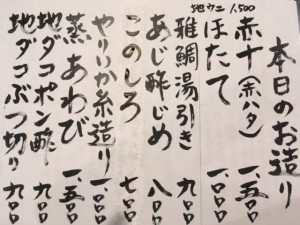 本日のお造り
赤十(金ハタ) 一、五〇〇
ほたて 一、〇〇〇
地ウニ 1,500
雅鯛湯引き 九〇〇
あじ酢じめ 八〇〇
このしろ 七〇〇
やりいか糸造り 一、〇〇〇
蒸あわび 一、五〇〇
地ダコポン酢 九〇〇
地ダコぶつ切り 九〇〇